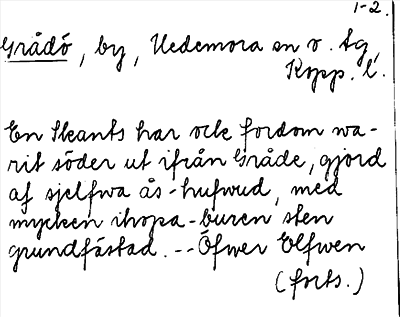 1-2.
Grådö, by, Hedemora sn o. tg,
Kopp. l.
En Skants har ock fordom wa-
rit söder ut ifrån Gråde, gjord
af sjelfwa ås-hufwud, med
mycken ihopa-buren sten
grundfästad. -- Öfwer Elfwen
(forts.)